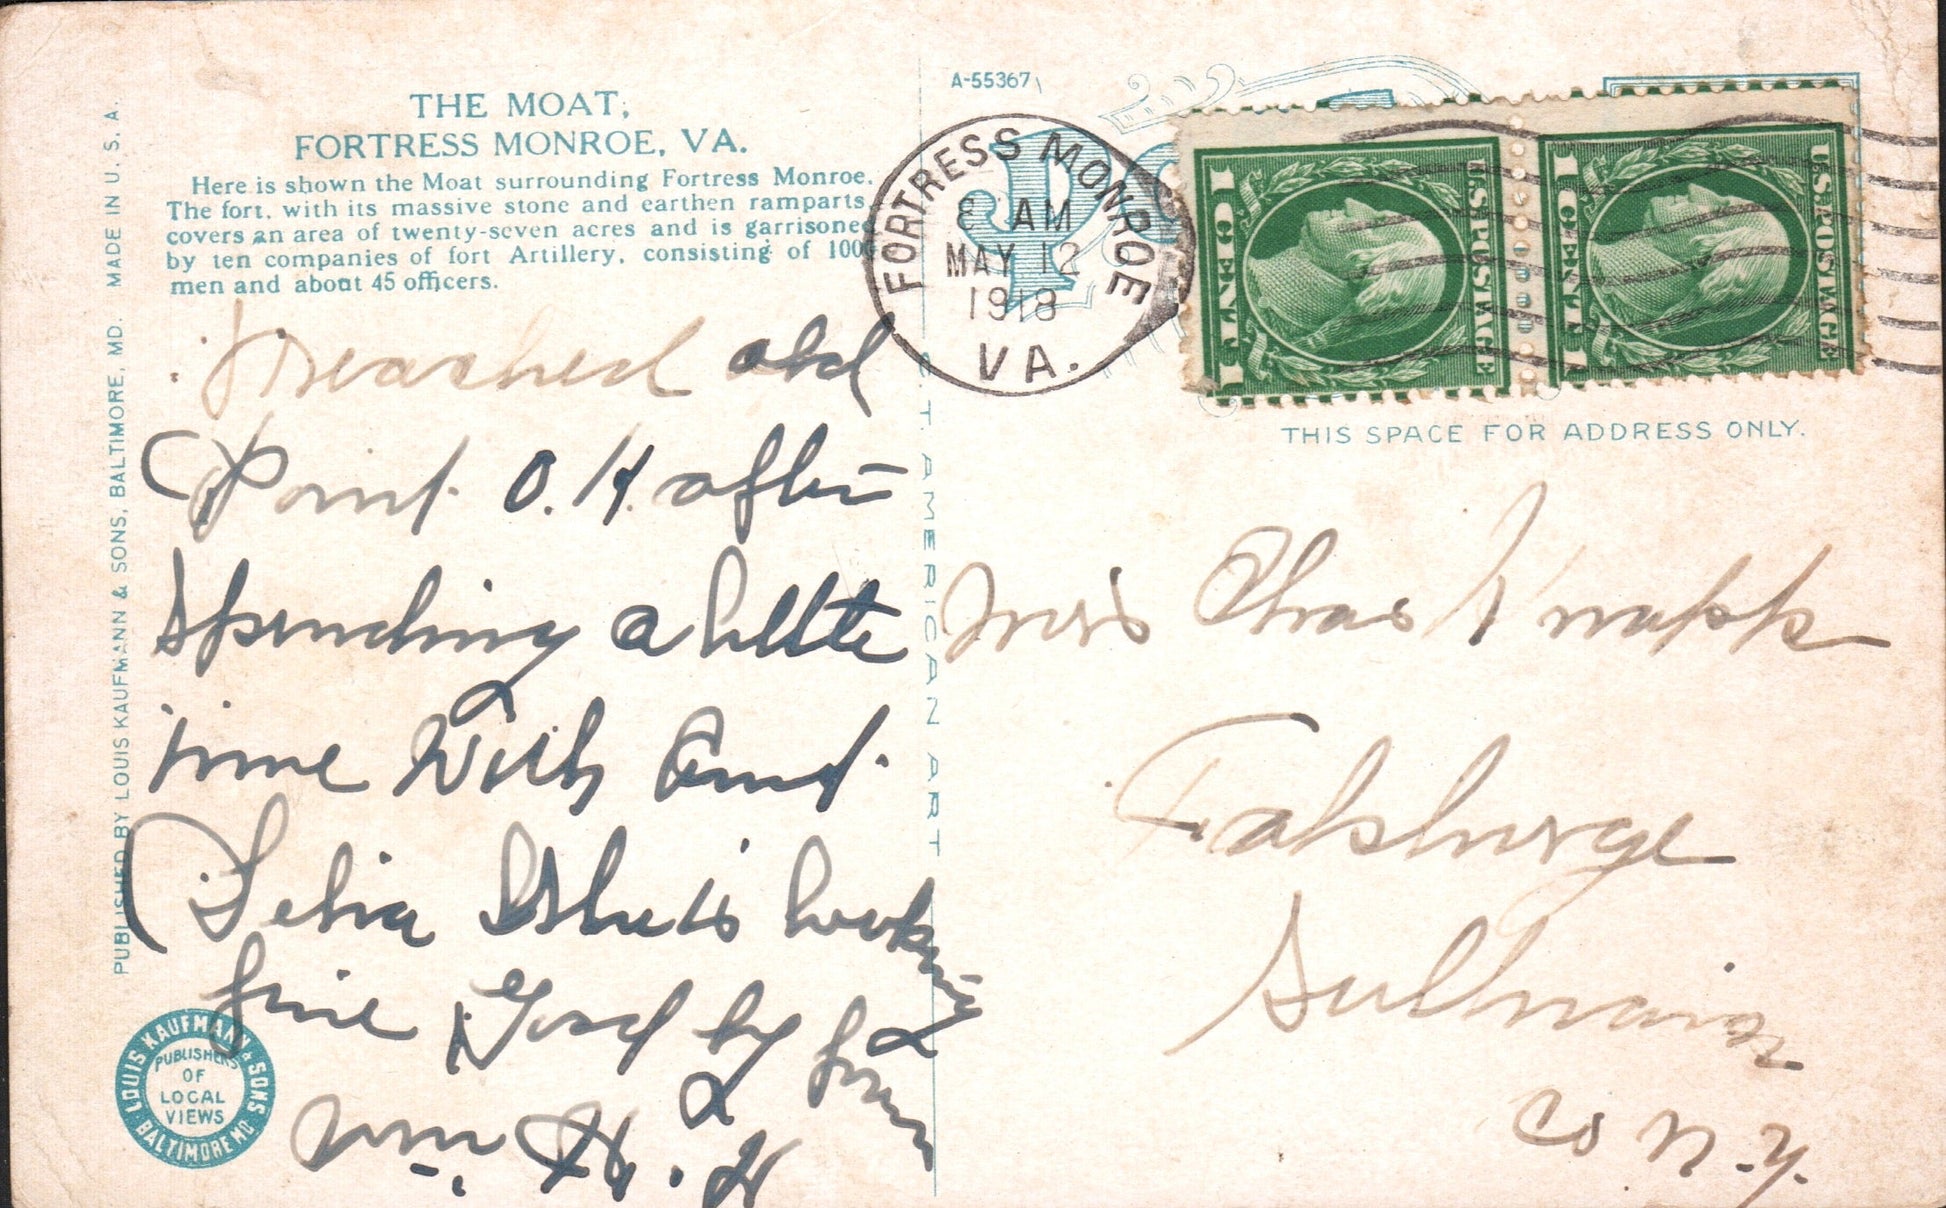 THE MOAT,
FORTRESS MONROE, VA.
Here is shown the Moat surrounding Fortress Monroe.
The fort, with its massive stone and earthen ramparts,
covers an area of twenty-seven acres and is garrisoned
by ten companies of fort Artillery, consisting of 1000
men and about 45 officers.
PUBLISHED BY LOUIS KAUFMANN & SONS, BALTIMORE, MD. MADE IN U. S. A.
reached old
Point O.K. after
spending a little
time with Aunt
Delia & she is looking
fine Good by from
Wm
LOUIS KAUFMANN & SONS
BALTIMORE MD
PUBLISHERS
OF
LOCAL
VIEWS
T. AMERICAN ART
A-55367
FORTRESS MONROE
8 AM
MAY 12
1918
VA.
U.S. POSTAGE
1 CENT 1
U.S. POSTAGE
1 CENT 1
THIS SPACE FOR ADDRESS ONLY.
Mrs Chas Knapp
Falsburge
Sullivan
Co N.Y.